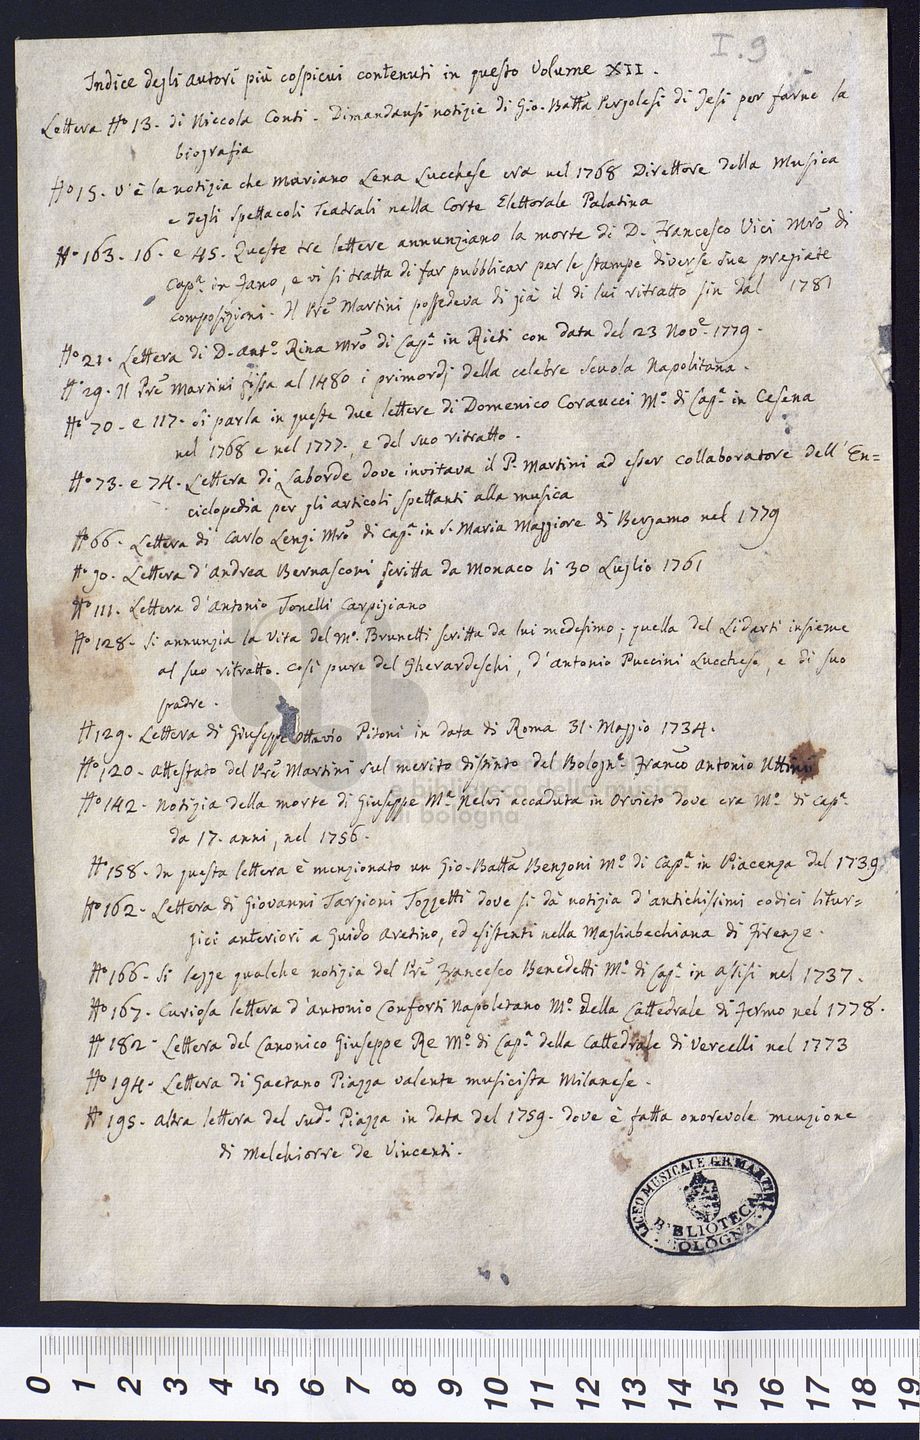 I.9
Indice degli autori più cospicui contenuti in questo Volume XII.
Lettera N.o 13. di Niccola Conti. Dimandansi notizie di Gio. Batta Pergolesi di Jesi per farne la
biografia
N.o 15. V'è la notizia che Mariano Lena Lucchese era nel 1768 Direttore della Musica
e degli Spettacoli Teatrali nella Corte Elettorale Palatina
N.o 163. 16. e 45. Queste tre lettere annunziano la morte di D. Francesco Vici Mro di
Capa. in Fano, e vi si tratta di far pubblicar per le stampe diverse sue pregiate
composizioni. Il Pre Martini possedeva di già il di lui ritratto sin dal 1781
N.o 21. Lettera di D. Anto. Rina Mro di Capa. in Rieti con data del 23 Nove. 1779.
N.o 29. Il Pre Martini fissa al 1480 i primordj della celebre Scuola Napolitana.
N.o 70. e 117. Si parla in queste due lettere di Domenico Coraucci Mo. di Capa. in Cesena
nel 1768 e nel 1777, e del suo ritratto.
N.o 73. e 74. Lettera di Laborde dove invitava il P. Martini ad esser collaboratore dell'En=
ciclopedia per gli articoli spettanti alla musica
N.o 66. Lettera di Carlo Lenzi Mro di Capa. in S. Maria Maggiore di Bergamo nel 1779
N.o 90. Lettera d'Andrea Bernasconi scritta da Monaco li 30 Luglio 1761
N.o 111. Lettera d'Antonio Tonelli Carpigiano
N.o 128. Si annunzia la Vita del Mo. Brunetti scritta da lui medesimo; quella del Lidarti insieme
al suo ritratto. Così pure del Gherardeschi, d'Antonio Puccini Lucchese, e di suo
padre.
N. 129. Lettera di Giuseppe Ottavio Pitoni in data di Roma 31. Maggio 1734.
N.o 120. Attestato del Pre Martini sul merito distinto del Bologne. Franco Antonio Uttini
N.o 142. Notizia della morte di Giuseppe Ma. Nelvi accaduta in Orvieto dove era Mo. di Capa.
da 17. anni, nel 1756.
N.o 158. In questa lettera è menzionato un Gio. Batta Benzoni Mo. di Capa. in Piacenza del 1739
N.o 162. Lettera di Giovanni Targioni Tozzetti dove si dà notizia d'antichissimi codici litur=
gici anteriori a Guido Aretino, ed esistenti nella Magliabechiana di Firenze.
N.o 166. Si legge qualche notizia del Pre Francesco Benedetti Mo. di Capa. in Assisi nel 1737.
N.o 167. Curiosa lettera d'Antonio Conforti Napoletano Mo. della Cattedrale di Fermo nel 1778.
N. 182. Lettera del Canonico Giuseppe Re Mo. di Capa. della Cattedrale di Vercelli nel 1773
N.o 194. Lettera di Gaetano Piazza valente musicista Milanese.
N. 195. Altra lettera del sudo. Piazza in data del 1759. dove è fatta onorevole menzione
di Melchiorre de Vincenti.
LICEO MUSICALE G.B. MARTINI
BIBLIOTECA
BOLOGNA
e biblioteca della musica
di bologna
0 1 2 3 4 5 6 7 8 9 10 11 12 13 14 15 16 17 18 19